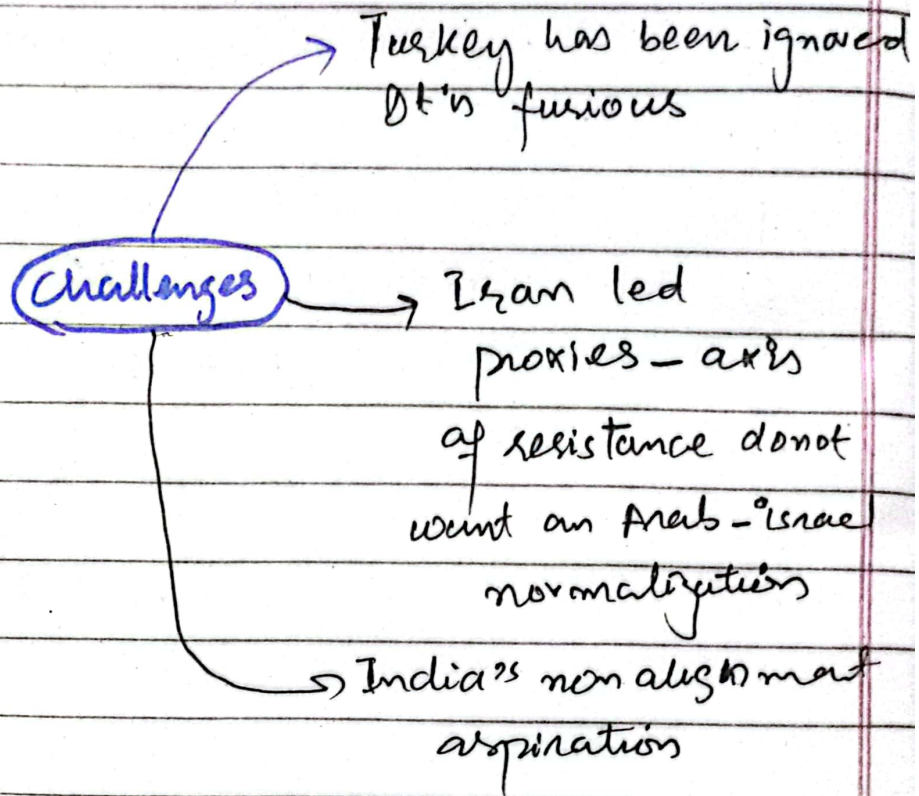 Turkey has been ignored
It's furious
Challenges
Iran led
proxies - axis
of resistance donot
want an Arab - israel
normalization
India's non alignment
aspiration